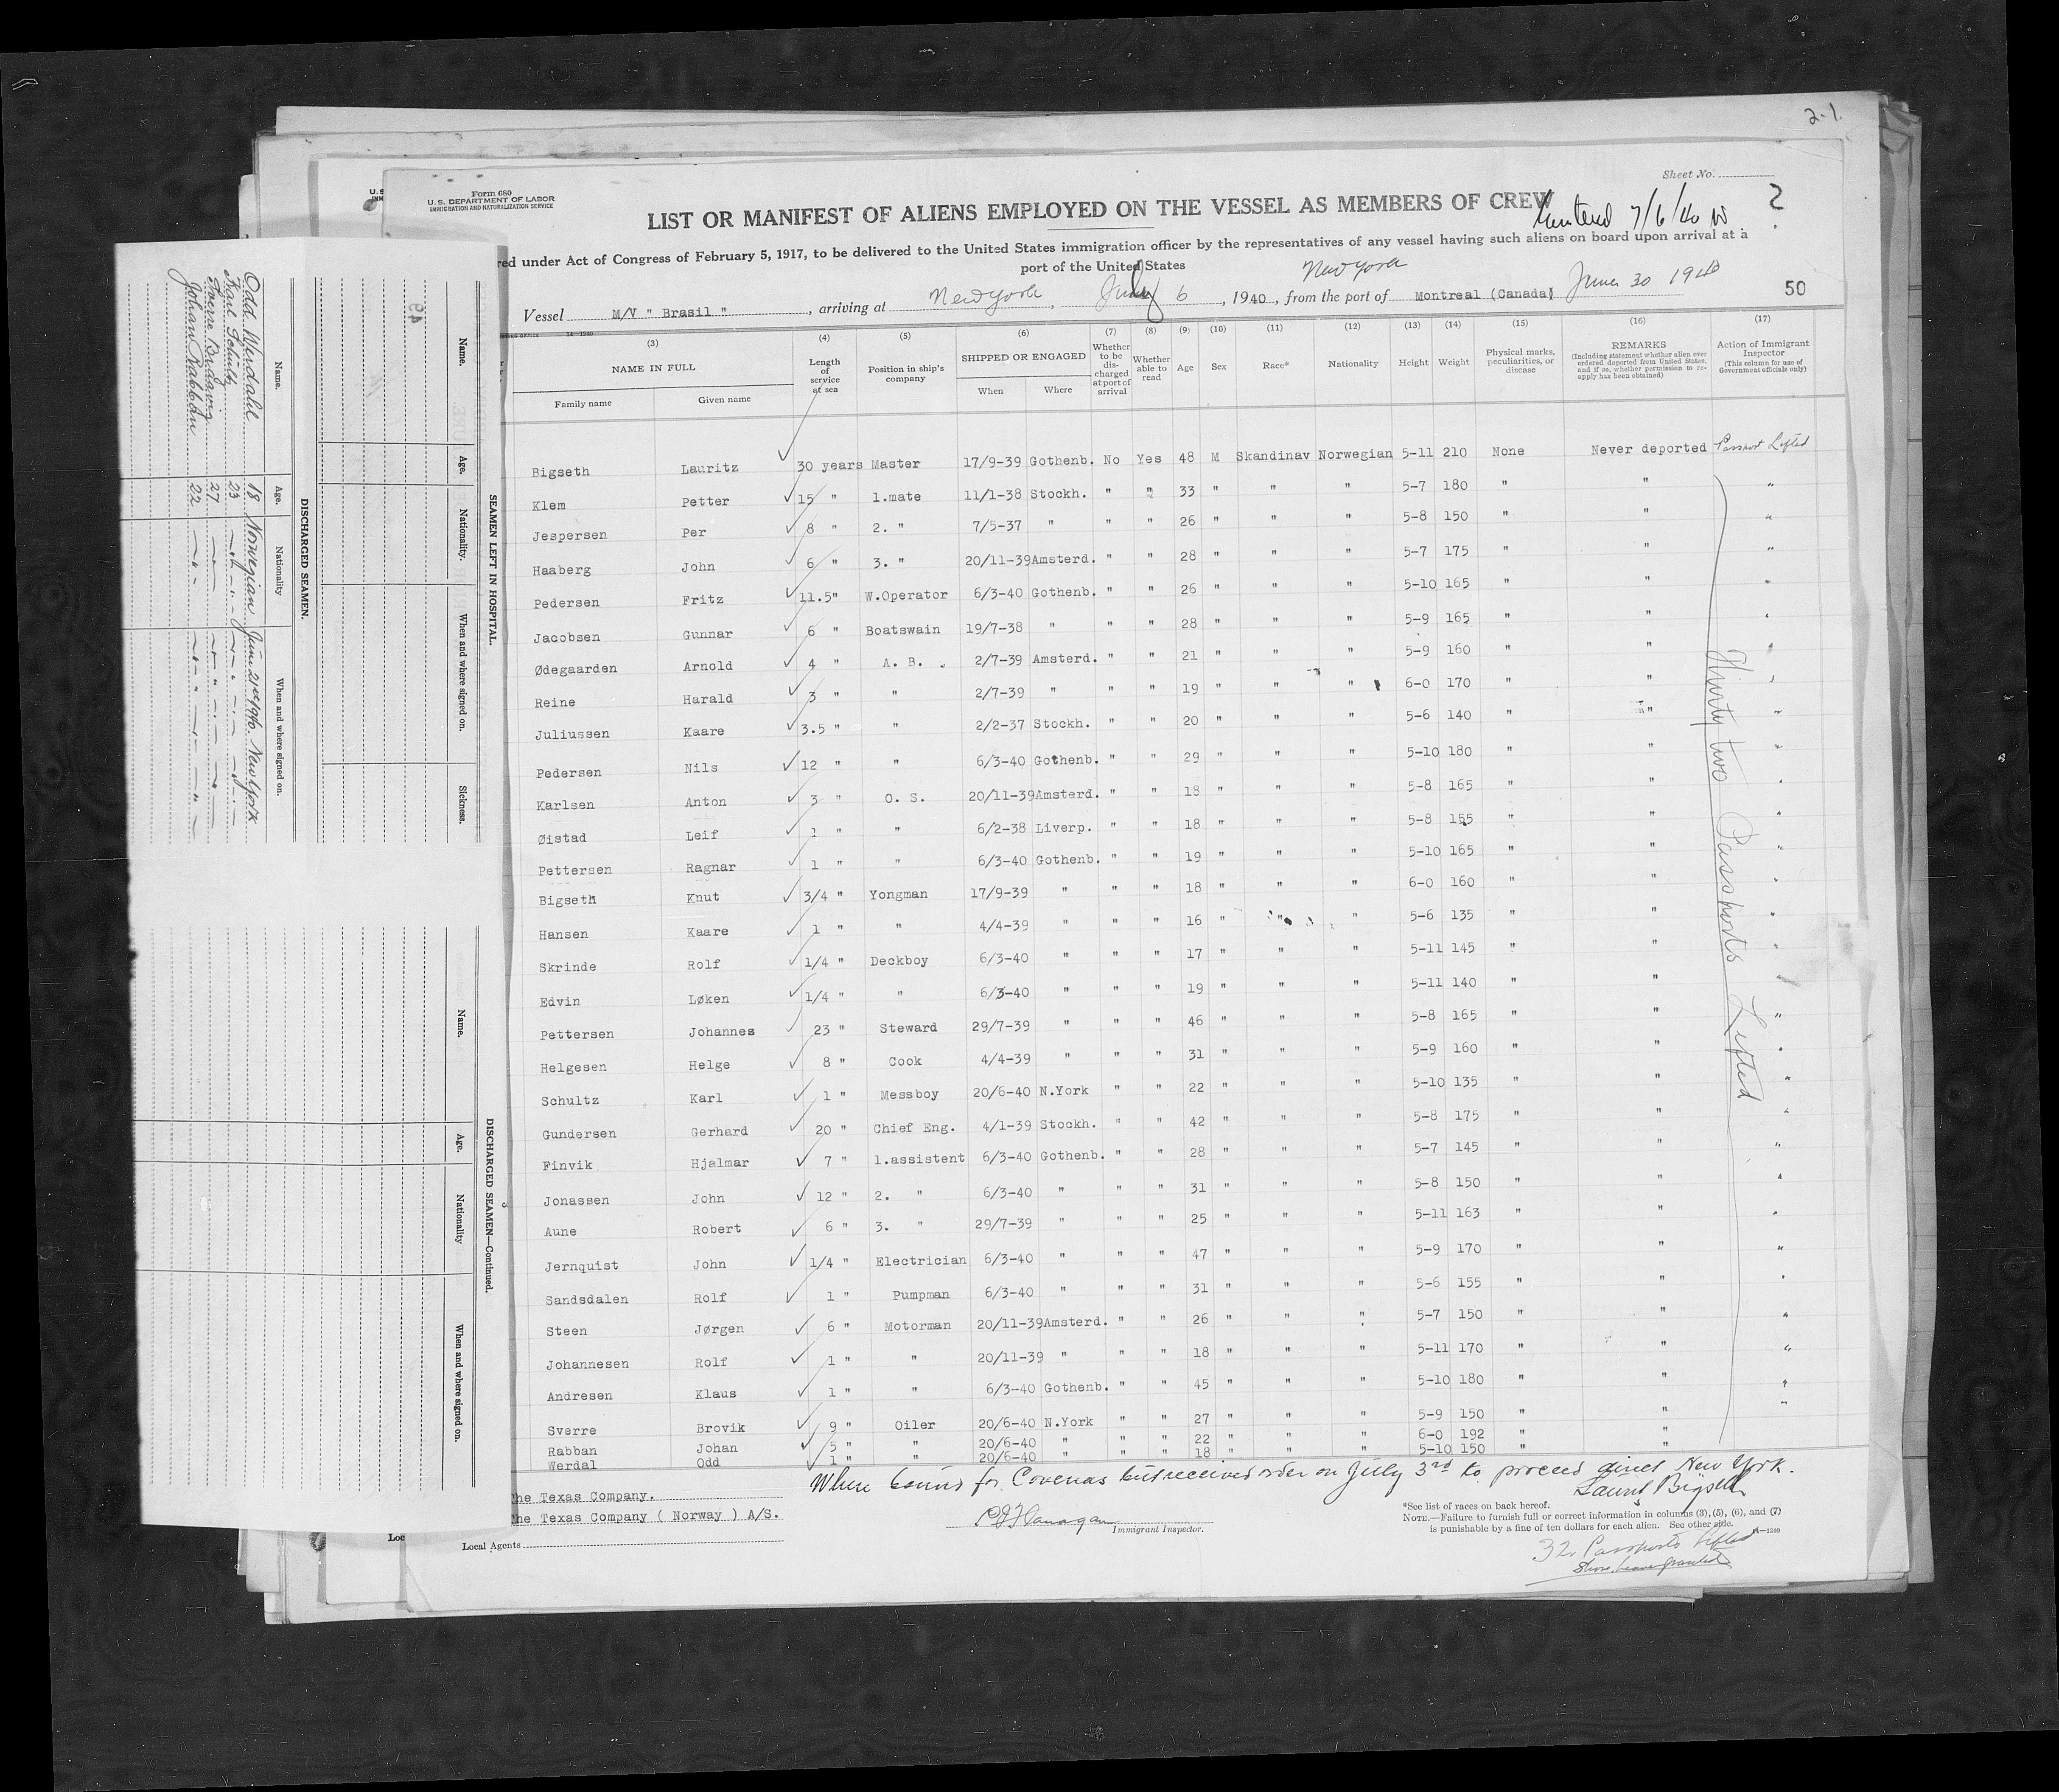 2-1.
Sheet No.
Form 680
U. S. DEPARTMENT OF LABOR
IMMIGRATION AND NATURALIZATION SERVICE
LIST OR MANIFEST OF ALIENS EMPLOYED ON THE VESSEL AS MEMBERS OF CREW
7/6/40
2
red under Act of Congress of February 5, 1917, to be delivered to the United States immigration officer by the representatives of any vessel having such aliens on board upon arrival at a
port of the United States
New York
Vessel M/V " Brasil " , arriving at New York , July 6 , 1940 , from the port of Montreal (Canada) June 30 1940
50
(3) (4) (5) (6) (7) (8) (9) (10) (11) (12) (13) (14) (15) (16) (17)
NAME IN FULL
Family name Given name
Length of service at sea
Position in ship's company
SHIPPED OR ENGAGED
When Where
Whether to be discharged at port of arrival
Whether able to read
Age Sex Race* Nationality Height Weight
Physical marks, peculiarities, or disease
REMARKS
(Including statement whether alien ever ordered deported from United States, and if so, whether permission to reapply has been obtained)
Action of Immigrant Inspector
(This column for use of Government officials only)
Bigseth Lauritz 30 years Master 17/9-39 Gothenb. No Yes 48 M Skandinav Norwegian 5-11 210 None Never deported Passport Lifted
Klem Petter 15 " 1.mate 11/1-38 Stockh. " " 33 " " " 5-7 180 " " "
Jespersen Per 8 " 2. " 7/5-37 " " " 26 " " " 5-8 150 " " "
Haaberg John 6 " 3. " 20/11-39 Amsterd. " " 28 " " " 5-7 175 " " "
Pedersen Fritz 11.5" W.Operator 6/3-40 Gothenb. " " 26 " " " 5-10 165 " " "
Jacobsen Gunnar 6 " Boatswain 19/7-38 " " " 28 " " " 5-9 165 " " "
Ødegaarden Arnold 4 " A. B. 2/7-39 Amsterd. " " 21 " " " 5-9 160 " " "
Reine Harald 3 " " 2/7-39 " " " 19 " " " 6-0 170 " " "
Juliussen Kaare 3.5 " " 2/2-37 Stockh. " " 20 " " " 5-6 140 " " "
Pedersen Nils 12 " " 6/3-40 Gothenb. " " 29 " " " 5-10 180 " " "
Karlsen Anton 3 " O. S. 20/11-39 Amsterd. " " 18 " " " 5-8 165 " " "
Øistad Leif 1 " " 6/2-38 Liverp. " " 18 " " " 5-8 155 " " "
Pettersen Ragnar 1 " " 6/3-40 Gothenb. " " 19 " " " 5-10 165 " " "
Bigseth Knut 3/4 " Yongman 17/9-39 " " " 18 " " " 6-0 160 " " "
Hansen Kaare 1 " " 4/4-39 " " " 16 " " " 5-6 135 " " "
Skrinde Rolf 1/4 " Deckboy 6/3-40 " " " 17 " " " 5-11 145 " " "
Edvin Løken 1/4 " " 6/3-40 " " " 19 " " " 5-11 140 " " "
Pettersen Johannes 23 " Steward 29/7-39 " " " 46 " " " 5-8 165 " " "
Helgesen Helge 8 " Cook 4/4-39 " " " 31 " " " 5-9 160 " " "
Schultz Karl 1 " Messboy 20/6-40 N.York " " 22 " " " 5-10 135 " " "
Gundersen Gerhard 20 " Chief Eng. 4/1-39 Stockh. " " 42 " " " 5-8 175 " " "
Finvik Hjalmar 7 " 1.assistent 6/3-40 Gothenb. " " 28 " " " 5-7 145 " " "
Jonassen John 12 " 2. " 6/3-40 " " " 31 " " " 5-8 150 " " "
Aune Robert 6 " 3. " 29/7-39 " " " 25 " " " 5-11 163 " " "
Jernquist John 1/4 " Electrician 6/3-40 " " " 47 " " " 5-9 170 " " "
Sandsdalen Rolf 1 " Pumpman 6/3-40 " " " 31 " " " 5-6 155 " " "
Steen Jørgen 6 " Motorman 20/11-39 Amsterd. " " 26 " " " 5-7 150 " " "
Johannesen Rolf 1 " " 20/11-39 " " " 18 " " " 5-11 170 " " "
Andresen Klaus 1 " " 6/3-40 Gothenb. " " 45 " " " 5-10 180 " " "
Sverre Brovik 9 " Oiler 20/6-40 N.York " " 27 " " " 5-9 150 " " "
Rabban Johan 5 " " 20/6-40 " " " 22 " " " 6-0 192 " "
Werdal Odd 1 " " 20/6-40 " " " 18 " " " 5-10 150 " "
Thirty two Passports Lifted
When bound for Covenas but received order on July 3rd to proceed direct New York.
Laurits Bigseth
The Texas Company.
The Texas Company ( Norway ) A/S.
Local Agents
Immigrant Inspector.
*See list of races on back hereof.
NOTE.—Failure to furnish full or correct information in columns (3), (5), (6), and (7)
is punishable by a fine of ten dollars for each alien. See other side.
32 Passports lifted
Shore leave granted
Loc
SEAMEN LEFT IN HOSPITAL.
Name. Age. Nationality. When and where signed on. Sickness.
DISCHARGED SEAMEN.
Name. Age. Nationality When and where signed on.
Odd Werdahl 18 Norwegian June 21st 1940. New York
Karl Schultz 23
27
Johan Rabban 22
DISCHARGED SEAMEN—Continued.
Name. Age. Nationality When and where signed on.